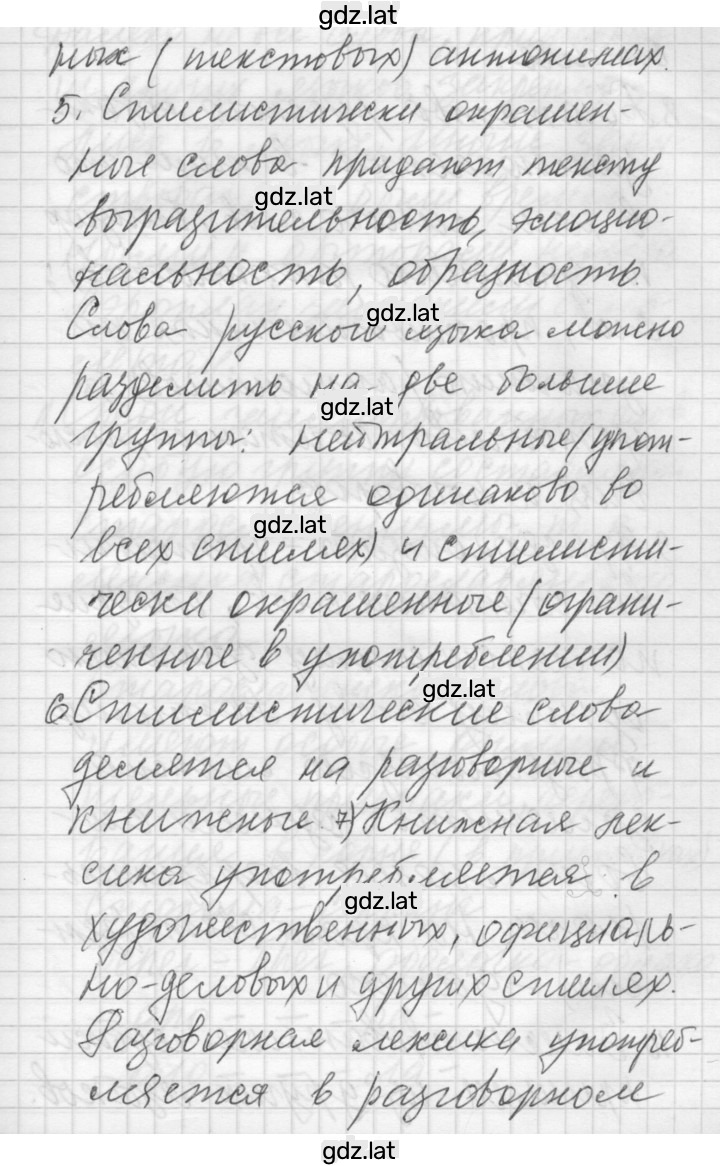 gdz.lat
ных (текстовых) антонимах.
5. Стилистически окрашен-
ные слова придают тексту
gdz.lat
выразительность, эмоцио-
нальность, образность.
gdz.lat
Слова русского языка можно
разделить на две большие
gdz.lat
группы: нейтральные (упот-
ребляются одинаково во
gdz.lat
всех стилях) и стилисти-
чески окрашенные (ограни-
ченные в употреблении)
gdz.lat
6 Стилистические слова
делятся на разговорные и
книжные. 7) Книжная лек-
сика употребляется в
gdz.lat
художественных, официаль-
но-деловых и других стилях.
Разговорная лексика употреб-
ляется в разговорном
gdz.lat